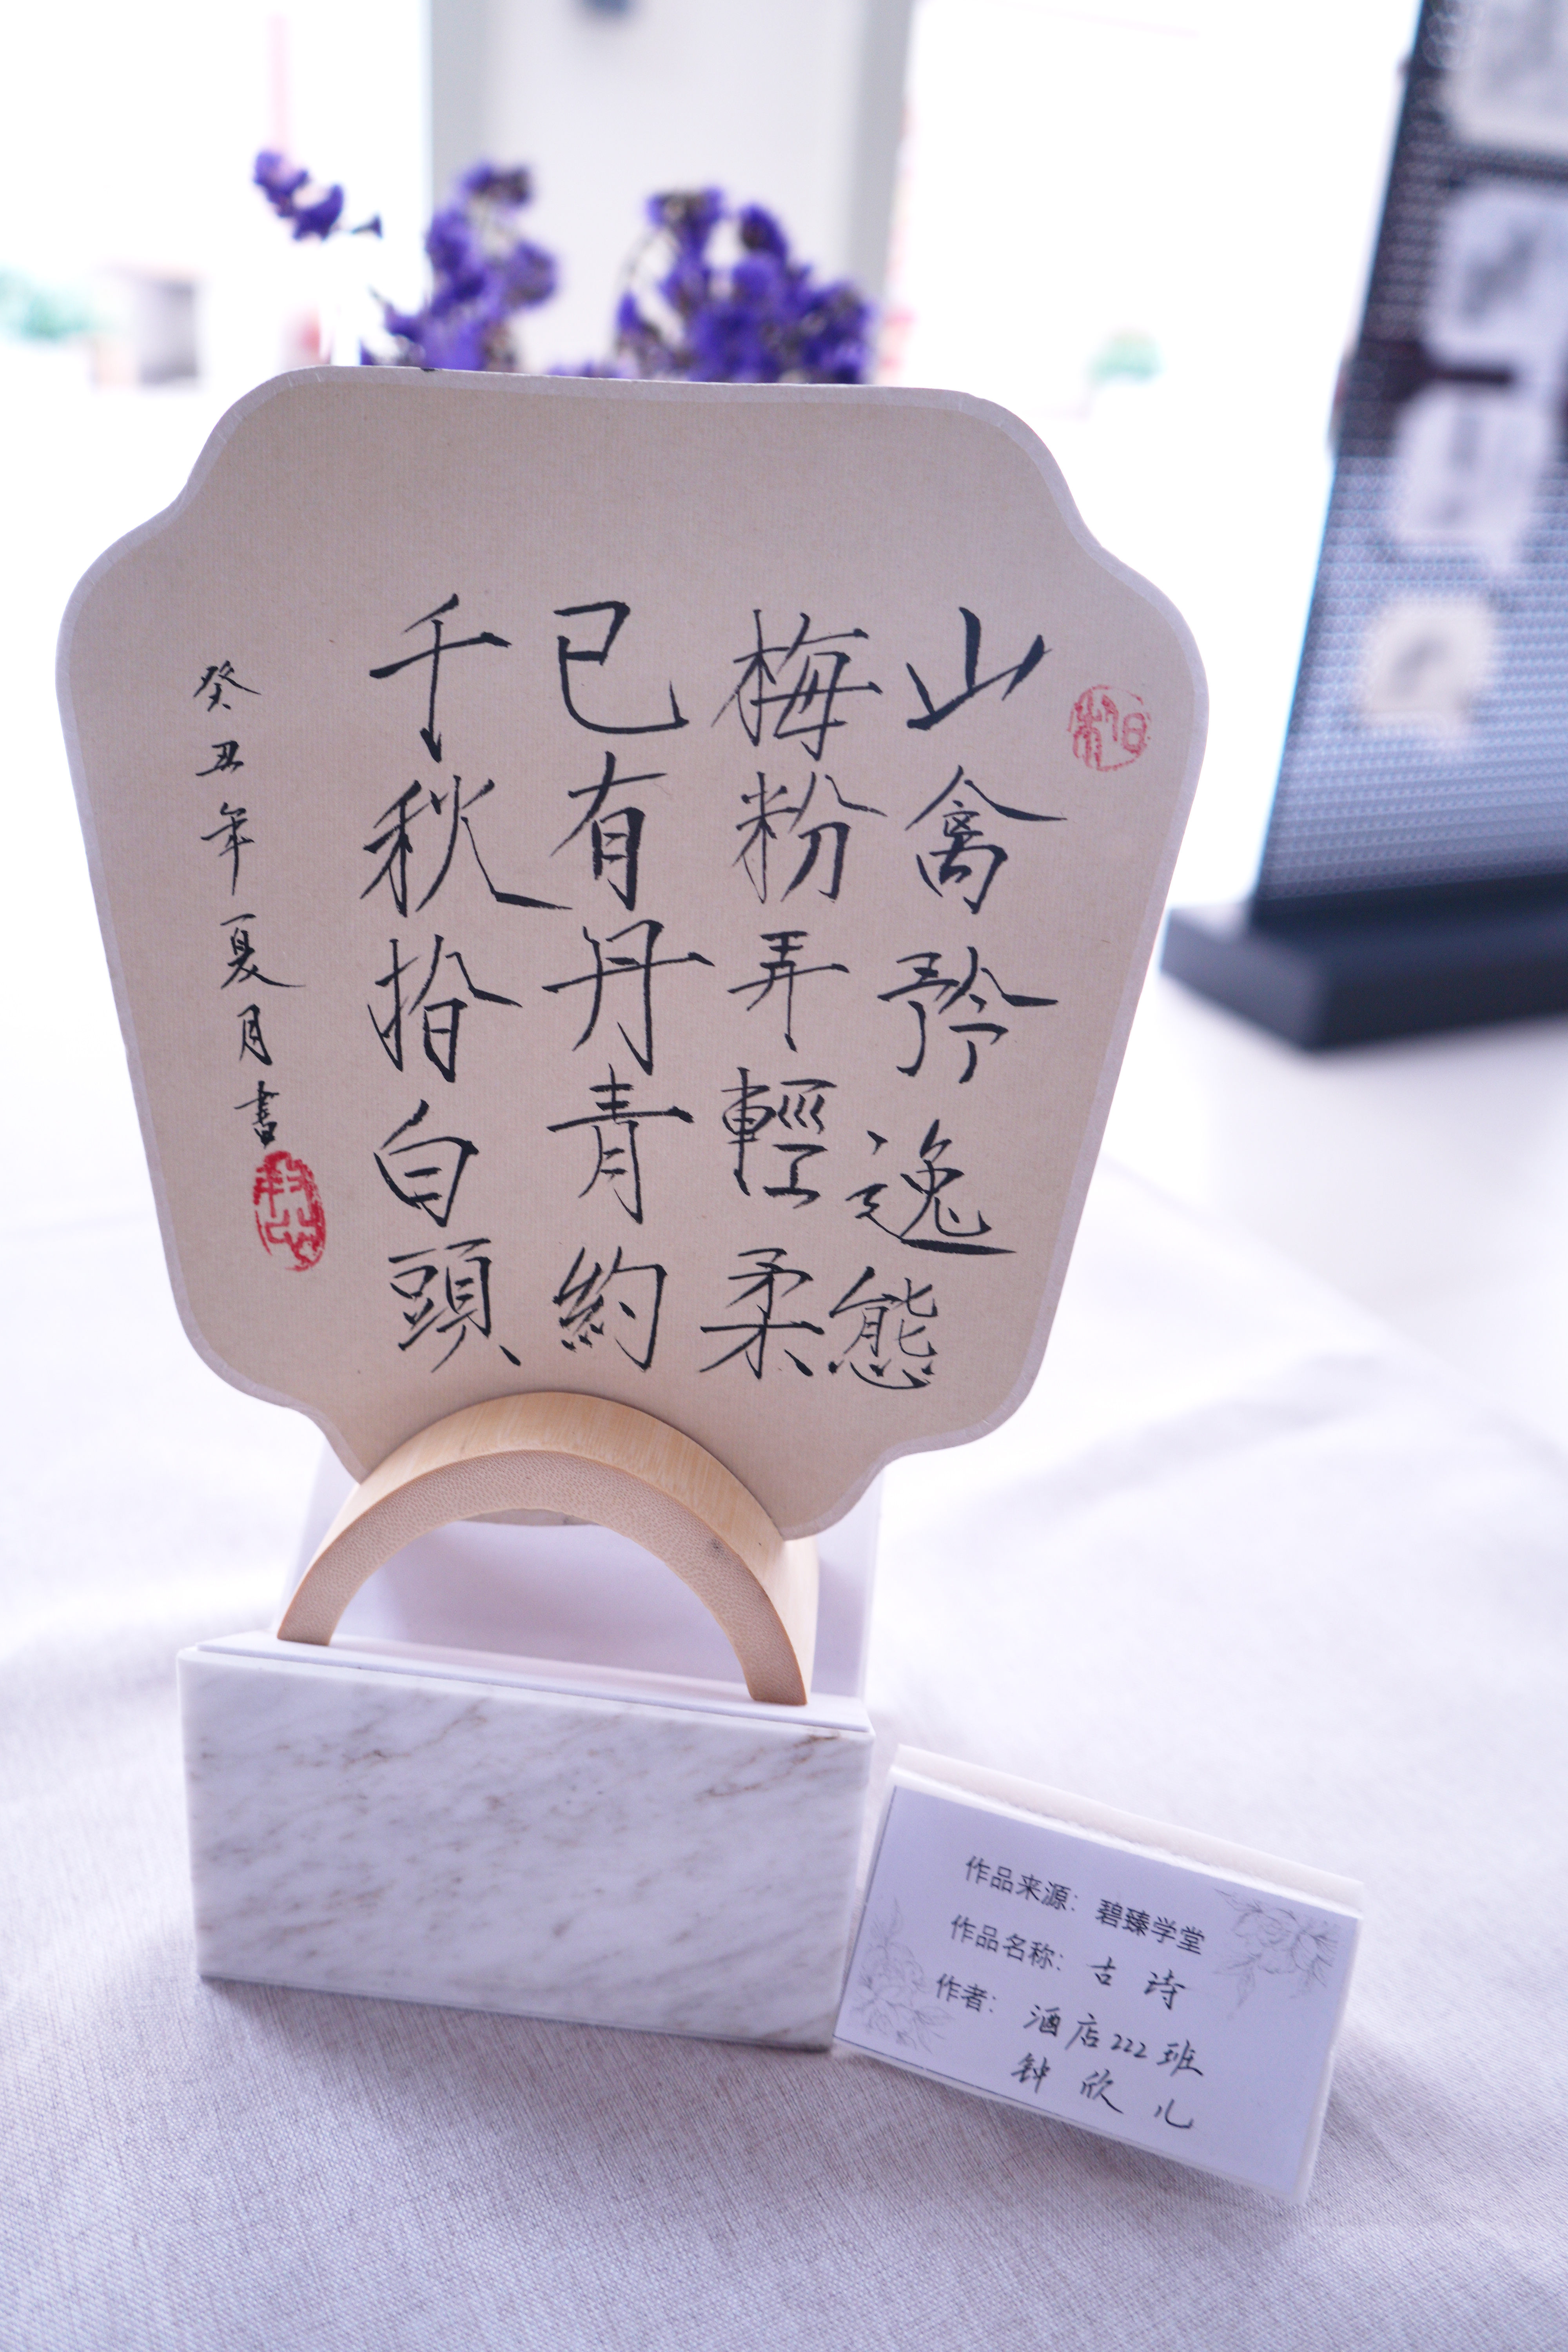 山禽矜逸態
梅粉弄輕柔
已有丹青約
千秋指白頭
癸丑年夏月書
作品来源：碧臻学堂
作品名称：古诗
作者：酒店222班
钟欣儿